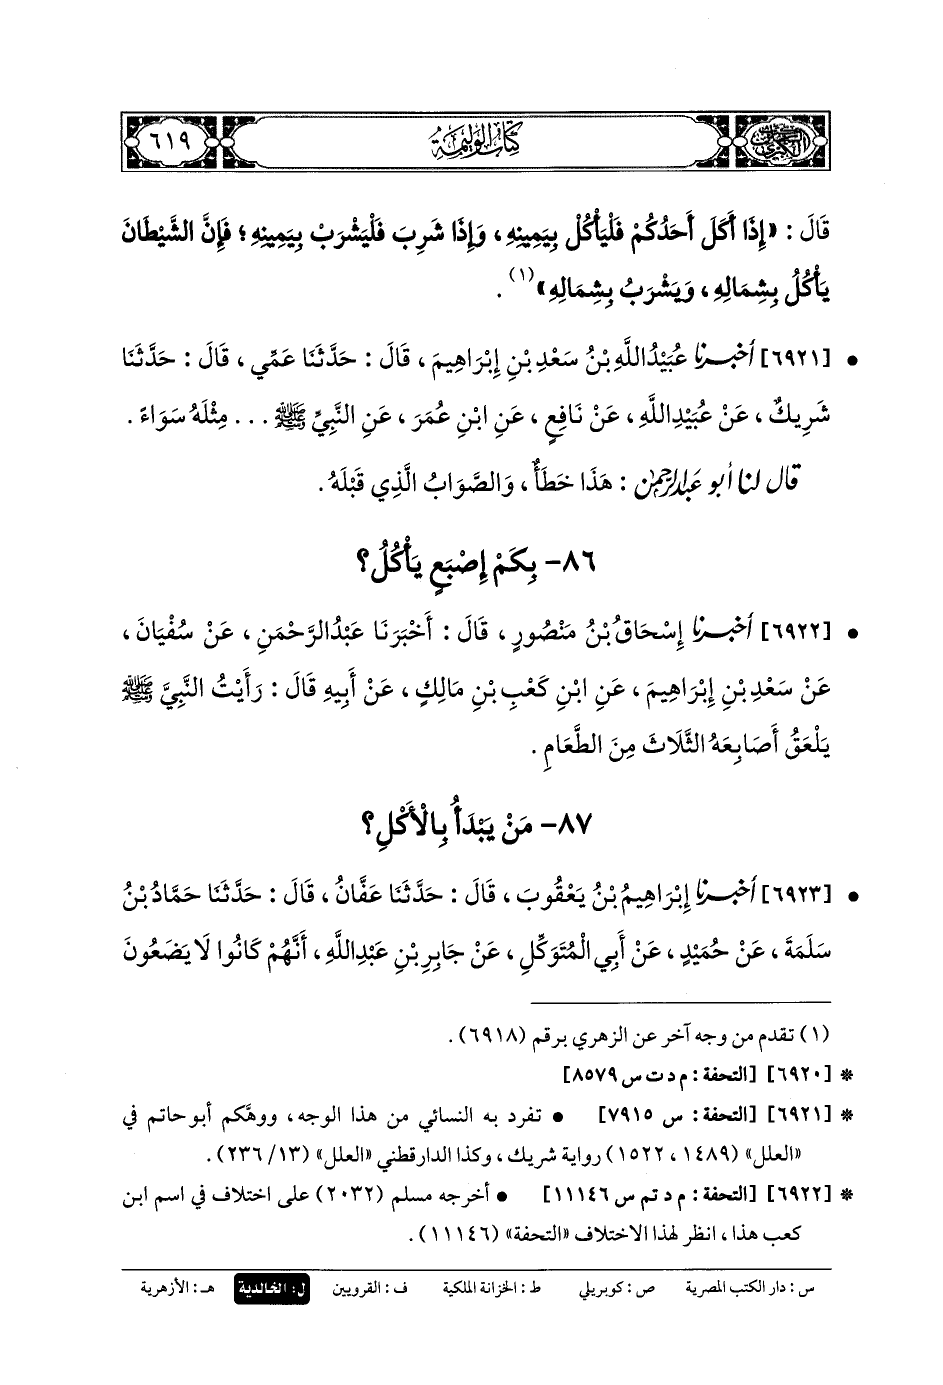 السنن الكبرى كتاب الوليمة ٦١٩
قَالَ : «إِذَا أَكَلَ أَحَدُكُمْ فَلْيَأْكُلْ بِيَمِينِهِ ، وَإِذَا شَرِبَ فَلْيَشْرَبْ بِيَمِينِهِ ؛ فَإِنَّ الشَّيْطَانَ
يَأْكُلُ بِشِمَالِهِ ، وَيَشْرَبُ بِشِمَالِهِ» (١) .
• [٦٩٢١] أخبرنا عُبَيْدُاللَّهِ بْنُ سَعْدِ بْنِ إِبْرَاهِيمَ ، قَالَ : حَدَّثَنَا عَمِّي ، قَالَ : حَدَّثَنَا
شَرِيكٌ ، عَنْ عُبَيْدِاللَّهِ ، عَنْ نَافِعٍ ، عَنِ ابْنِ عُمَرَ ، عَنِ النَّبِيِّ ﷺ . . . مِثْلَهُ سَوَاءً .
قال لنا أبو عبد الرحمن : هَذَا خَطَأٌ ، وَالصَّوَابُ الَّذِي قَبْلَهُ .
٨٦- بِكَمْ إِصْبَعٍ يَأْكُلُ ؟
• [٦٩٢٢] أخبرنا إِسْحَاقُ بْنُ مَنْصُورٍ ، قَالَ : أَخْبَرَنَا عَبْدُالرَّحْمَنِ ، عَنْ سُفْيَانَ ،
عَنْ سَعْدِ بْنِ إِبْرَاهِيمَ ، عَنِ ابْنِ كَعْبِ بْنِ مَالِكٍ ، عَنْ أَبِيهِ قَالَ : رَأَيْتُ النَّبِيَّ ﷺ
يَلْعَقُ أَصَابِعَهُ الثَّلَاثَ مِنَ الطَّعَامِ .
٨٧- مَنْ يَبْدَأُ بِالْأَكْلِ ؟
• [٦٩٢٣] أخبرنا إِبْرَاهِيمُ بْنُ يَعْقُوبَ ، قَالَ : حَدَّثَنَا عَفَّانُ ، قَالَ : حَدَّثَنَا حَمَّادُ بْنُ
سَلَمَةَ ، عَنْ حُمَيْدٍ ، عَنْ أَبِي الْمُتَوَكِّلِ ، عَنْ جَابِرِ بْنِ عَبْدِاللَّهِ ، أَنَّهُمْ كَانُوا لَا يَضَعُونَ
(١) تقدم من وجه آخر عن الزهري برقم (٦٩١٨) .
* [٦٩٢٠] [التحفة : م د ت س ٨٥٧٩]
* [٦٩٢١] [التحفة : س ٧٩١٥] • تفرد به النسائي من هذا الوجه ، ووهَّكم أبو حاتم في
«العلل» (١٤٨٩ ، ١٥٢٢) رواية شريك ، وكذا الدارقطني «العلل» (١٣/ ٢٣٦) .
* [٦٩٢٢] [التحفة : م د تم س ١١١٤٦] • أخرجه مسلم (٢٠٣٢) على اختلاف في اسم ابن
كعب هذا ، انظر لهذا الاختلاف «التحفة» (١١١٤٦) .
س : دار الكتب المصرية ص : كوبريلي ط : الخزانة الملكية ف : القرويين ل : الخالدية هـ : الأزهرية